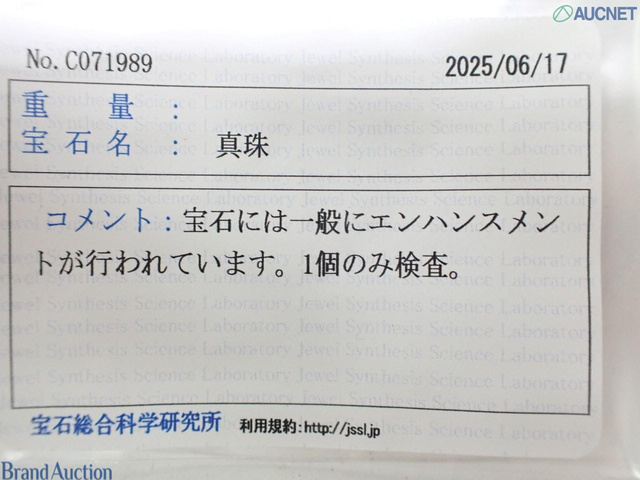 AUCNET
No. C071989
2025/06/17
重量:
宝石名: 真珠
コメント:宝石には一般にエンハンスメン
トが行われています。1個のみ検査。
宝石総合科学研究所 利用規約:http://jssl.jp
Brand Auction
Jewel Synthesis Science Laboratory